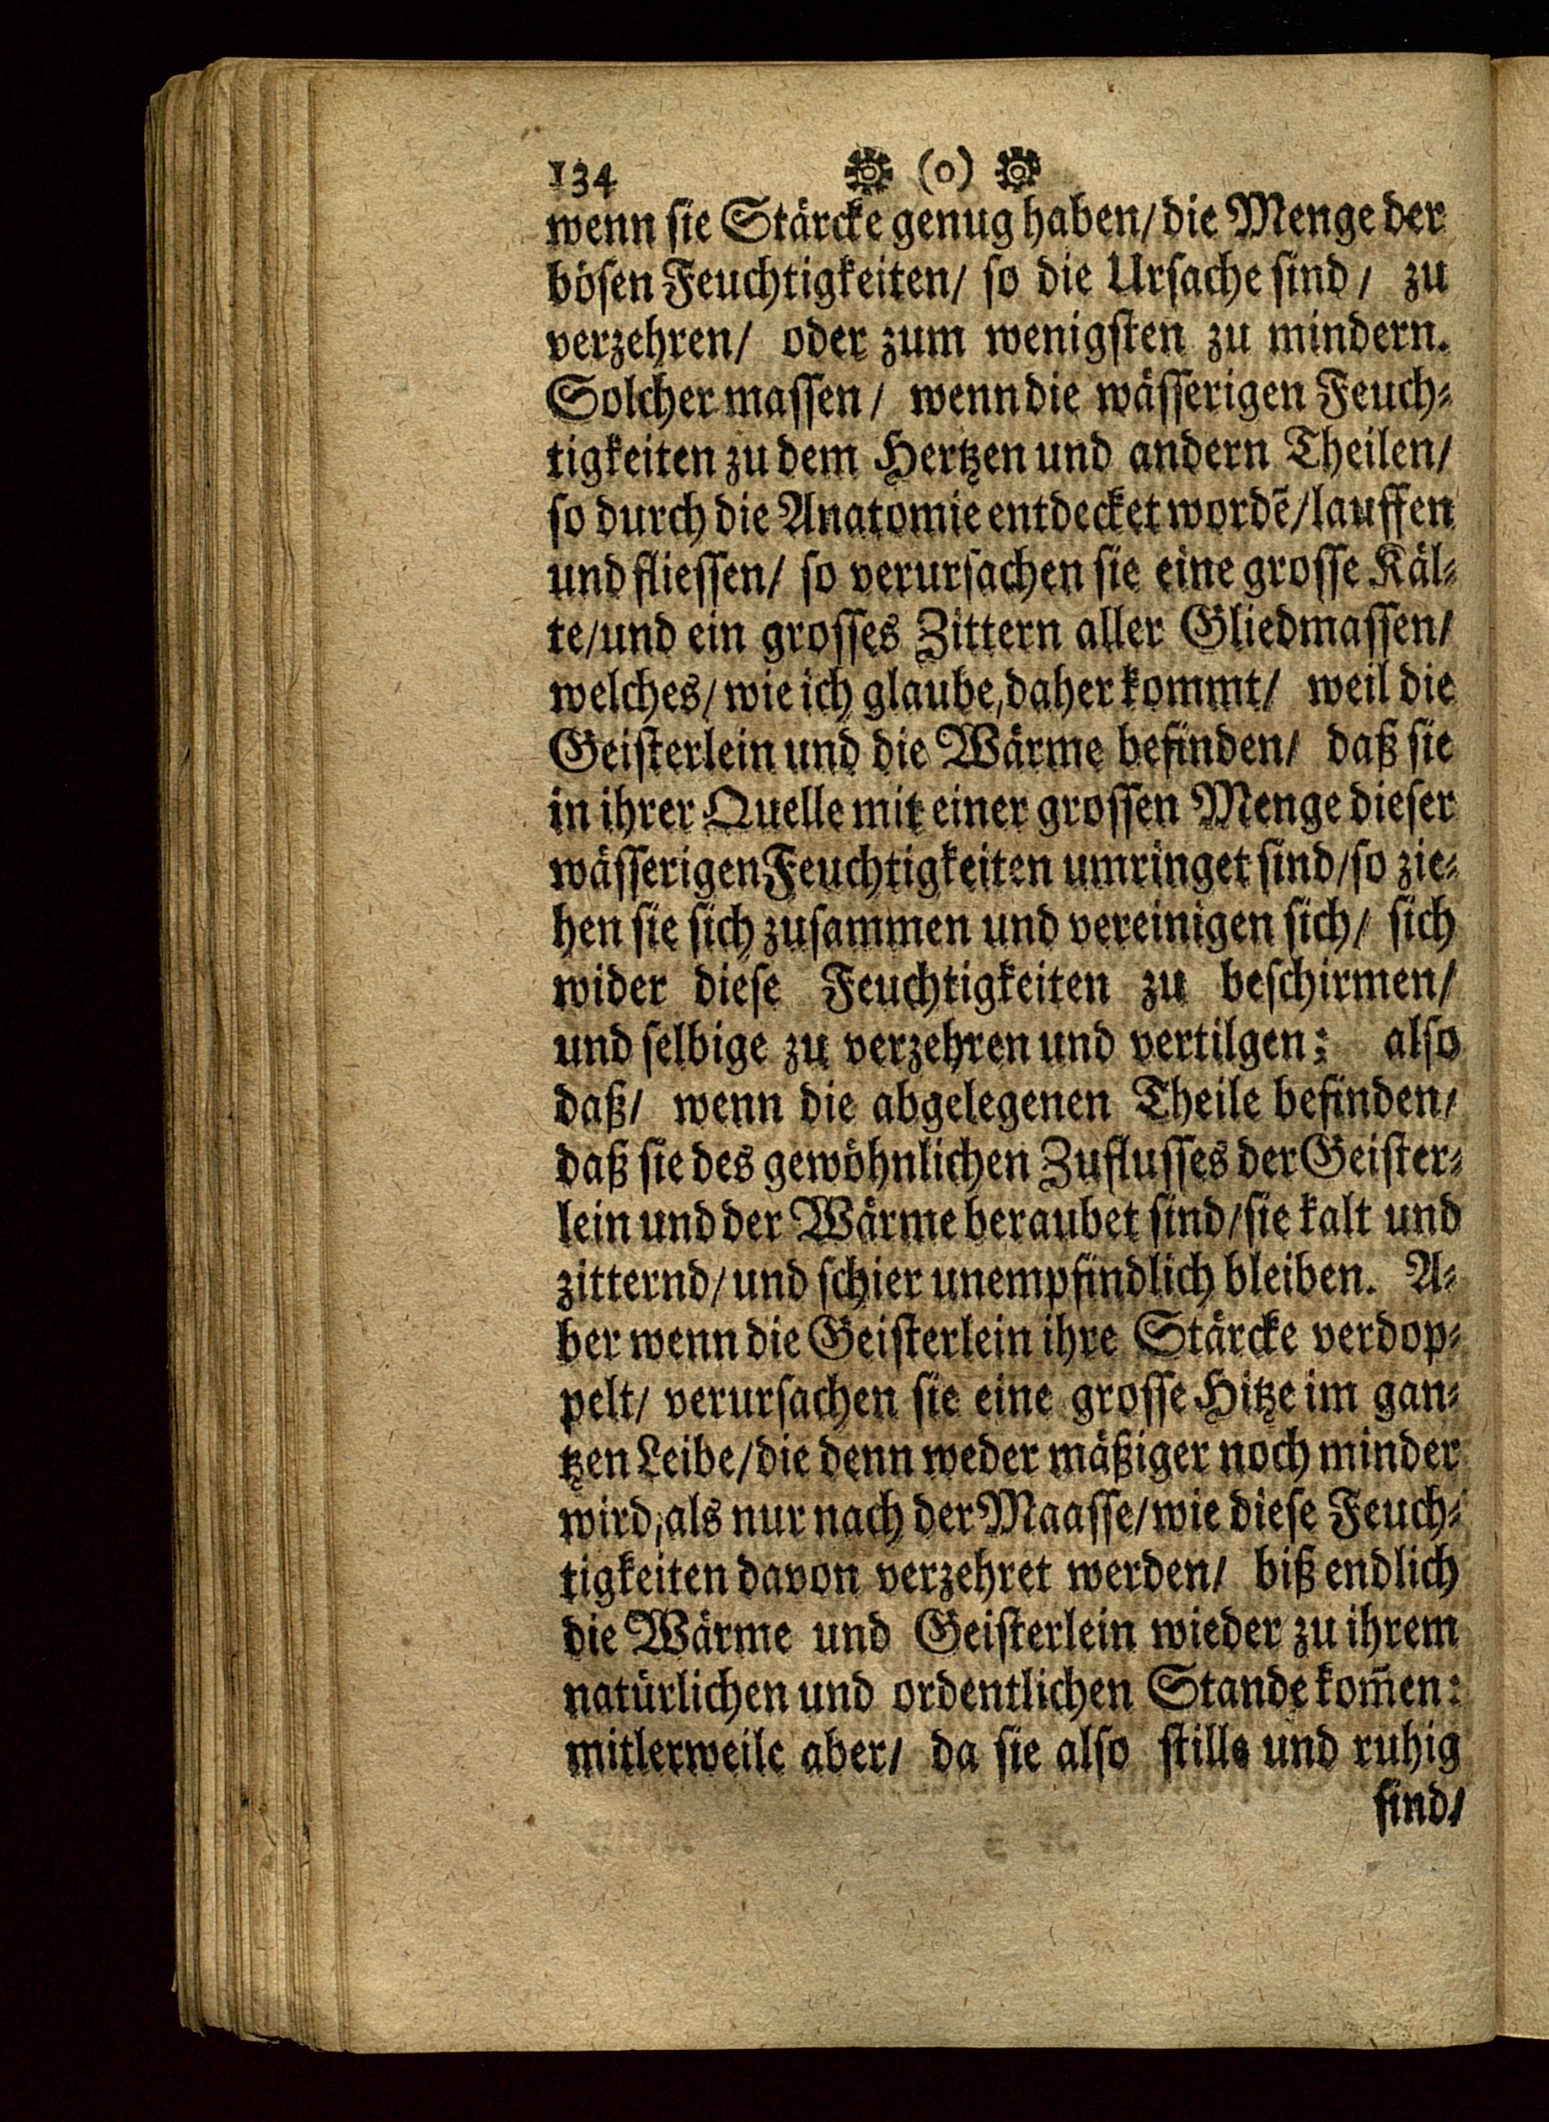 134 ❁ (o) ❁
wenn sie Stärcke genug haben/ die Menge der
bösen Feuchtigkeiten/ so die Ursache sind/ zu
verzehren/ oder zum wenigsten zu mindern.
Solcher massen/ wenn die wässerigen Feuch⸗
tigkeiten zu dem Hertzen und andern Theilen/
so durch die Anatomie entdecket wordẽ/ lauffen
und fliessen/ so verursachen sie eine grosse Käl⸗
te/ und ein grosses Zittern aller Gliedmassen/
welches/ wie ich glaube, daher kommt/ weil die
Geisterlein und die Wärme befinden/ daß sie
in ihrer Quelle mit einer grossen Menge dieser
wässerigen Feuchtigkeiten umringet sind/ so zie⸗
hen sie sich zusammen und vereinigen sich/ sich
wider diese Feuchtigkeiten zu beschirmen/
und selbige zu verzehren und vertilgen: also
daß/ wenn die abgelegenen Theile befinden/
daß sie des gewöhnlichen Zuflusses der Geister⸗
lein und der Wärme beraubet sind/ sie kalt und
zitternd/ und schier unempfindlich bleiben. A⸗
ber wenn die Geisterlein ihre Stärcke verdop⸗
pelt/ verursachen sie eine grosse Hitze im gan⸗
tzen Leibe/ die denn weder mäßiger noch minder
wird, als nur nach der Maasse/ wie diese Feuch⸗
tigkeiten davon verzehret werden/ biß endlich
die Wärme und Geisterlein wieder zu ihrem
natürlichen und ordentlichen Stande kom̃en:
mitlerweile aber/ da sie also stille und ruhig
sind/